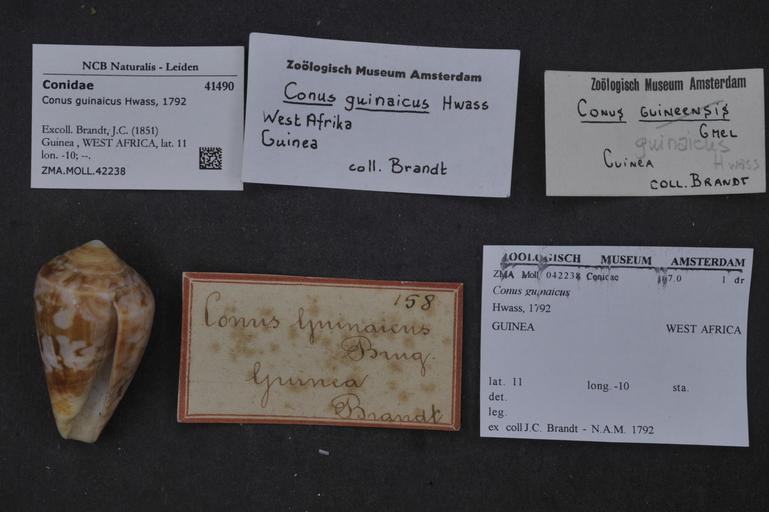 NCB Naturalis - Leiden
Conidae 41490
Conus guinaicus Hwass, 1792
Excoll. Brandt, J.C. (1851)
Guinea , WEST AFRICA, lat. 11
lon. -10; --.
ZMA.MOLL.42238
Zoölogisch Museum Amsterdam
Conus guinaicus Hwass
West Afrika
Guinea
coll. Brandt
Zoölogisch Museum Amsterdam
Conus guineensis
Gmel
guinaicus
Hwass
Guinea
coll. Brandt
158
Conus Guinaicus
Brug.
Guinea
Brandt
ZOOLOGISCH MUSEUM AMSTERDAM
ZMA Moll 042238 Conidae 17.0 1 dr
Conus guinaicus
Hwass, 1792
GUINEA WEST AFRICA
lat. 11 long. -10 sta.
det.
leg.
ex coll J.C. Brandt - N.A.M. 1792